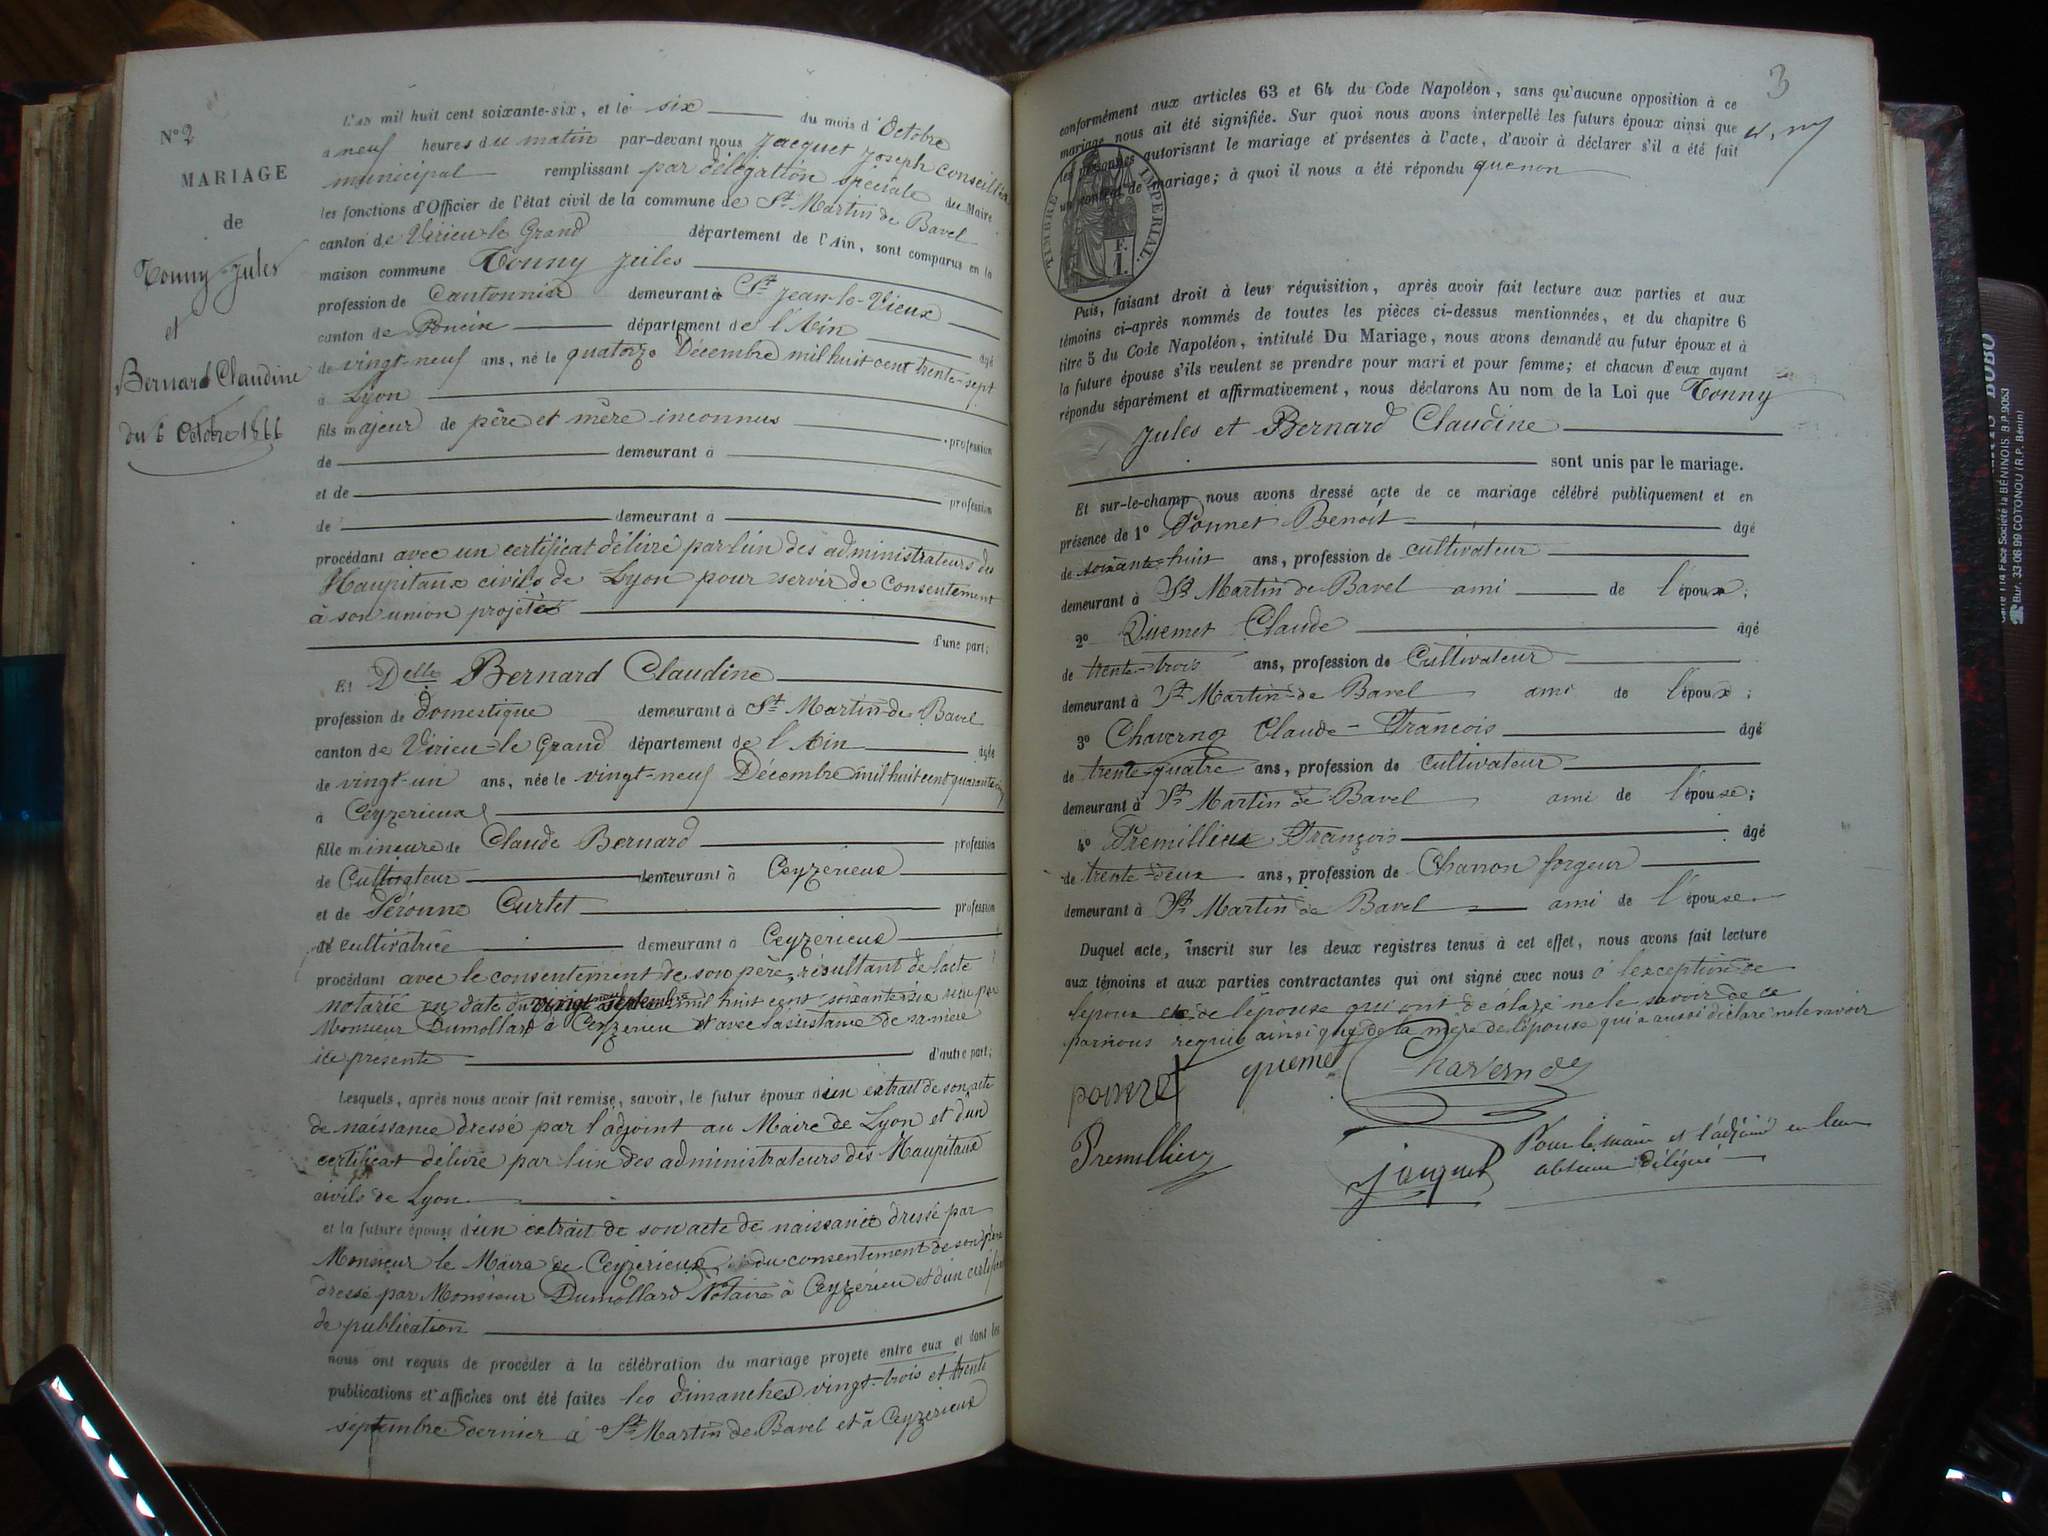 N° 2
MARIAGE
de
Tonny Jules
et
Bernard Claudine
du 6 Octobre 1866
L'an mil huit cent soixante-six, et le six du mois d'Octobre
à neuf heures du matin par-devant nous Jacquet Joseph conseiller
municipal remplissant par délégation spéciale du Maire
les fonctions d'Officier de l'état civil de la commune de St Martin de Bavel
canton de Virieu-le Grand département de l'Ain, sont comparus en la
maison commune Tonny Jules
profession de Cantonnier demeurant à St Jean-le-Vieux
canton de Poncin département de l'Ain âgé
de vingt-neuf ans, né le quatorze Décembre mil huit cent trente-sept
à Lyon
fils majeur de père et mère inconnus profession
de demeurant à
et de profession
de demeurant à
procédant avec un certificat délivré par l'un des administrateurs des
Haupitaux civils de Lyon pour servir de consentement
à son union projetée
d'une part;
Et Delle Bernard Claudine
profession de domestique demeurant à St Martin-de Bavel
canton de Virieu-le Grand département de l'Ain âgée
de vingt-un ans, née le vingt-neuf Décembre mil huit cent quarante
à Ceyzerieux
fille mineure de Claude Bernard profession
de Cultivateur demeurant à Ceyzerieux
et de Péronne Curtet profession
de cultivatrice demeurant à Ceyzerieux
procédant avec le consentement de son père, résultant de l'acte
notarié en date du vingt septembre mil huit cent soixante six reçu par
Monsieur Dumollard à Ceyzerieu et avec l'assistance de sa mère
ici présente d'autre part;
Lesquels, après nous avoir fait remise, savoir, le futur époux d'un extrait de son acte
de naissance dressé par l'adjoint au Maire de Lyon et d'un
certificat délivré par l'un des administrateurs des Haupitaux
civils de Lyon
et la future épouse d'un extrait de son acte de naissance dressé par
Monsieur le Maire de Ceyzerieux, du consentement de son père
dressé par Monsieur Dumollard Notaire à Ceyzerieu et d'un certificat
de publication
nous ont requis de procéder à la célébration du mariage projeté entre eux et dont les
publications et affiches ont été faites les dimanches vingt-trois et trente
septembre dernier à St Martin de Bavel et à Ceyzerieux
3
conformément aux articles 63 et 64 du Code Napoléon, sans qu'aucune opposition à ce
mariage nous ait été signifiée. Sur quoi nous avons interpellé les futurs époux ainsi que
les personnes autorisant le mariage et présentes à l'acte, d'avoir à déclarer s'il a été fait
un contrat de mariage; à quoi il nous a été répondu que non
TIMBRE IMPERIAL.
F.
1.
Puis, faisant droit à leur réquisition, après avoir fait lecture aux parties et aux
témoins ci-après nommés de toutes les pièces ci-dessus mentionnées, et du chapitre 6
titre 5 du Code Napoléon, intitulé Du Mariage, nous avons demandé au futur époux et à
la future épouse s'ils veulent se prendre pour mari et pour femme; et chacun d'eux ayant
répondu séparément et affirmativement, nous déclarons Au nom de la Loi que Tonny
Jules et Bernard Claudine
sont unis par le mariage.
Et sur-le-champ nous avons dressé acte de ce mariage célébré publiquement et en
présence de 1° Ponnet Benoît âgé
de soixante-huit ans, profession de cultivateur
demeurant à St Martin de Bavel ami de l'époux;
2° Quemet Claude âgé
de trente-trois ans, profession de Cultivateur
demeurant à St Martin-de Bavel ami de l'époux;
3° Claude-François âgé
de trente-quatre ans, profession de cultivateur
demeurant à St Martin de Bavel ami de l'épouse;
4° Premillieu François âgé
de trente-deux ans, profession de Charron forgeur
demeurant à St Martin de Bavel ami de l'épouse.
Duquel acte, inscrit sur les deux registres tenus à cet effet, nous avons fait lecture
aux témoins et aux parties contractantes qui ont signé avec nous à l'exception de
l'époux et de l'épouse qui ont déclaré ne le savoir de ce
par nous requis ainsi que de la mère de l'épouse qui a aussi déclaré ne le savoir
ponnet quemet
Premillieu
Jacquet
Pour le maire et l'adjoint en leur
absence délégué
BOBO
Face Société la BÉNINOIS. B.P. 9063
Bur. 33-08-99 COTONOU (R.P. Bénin)